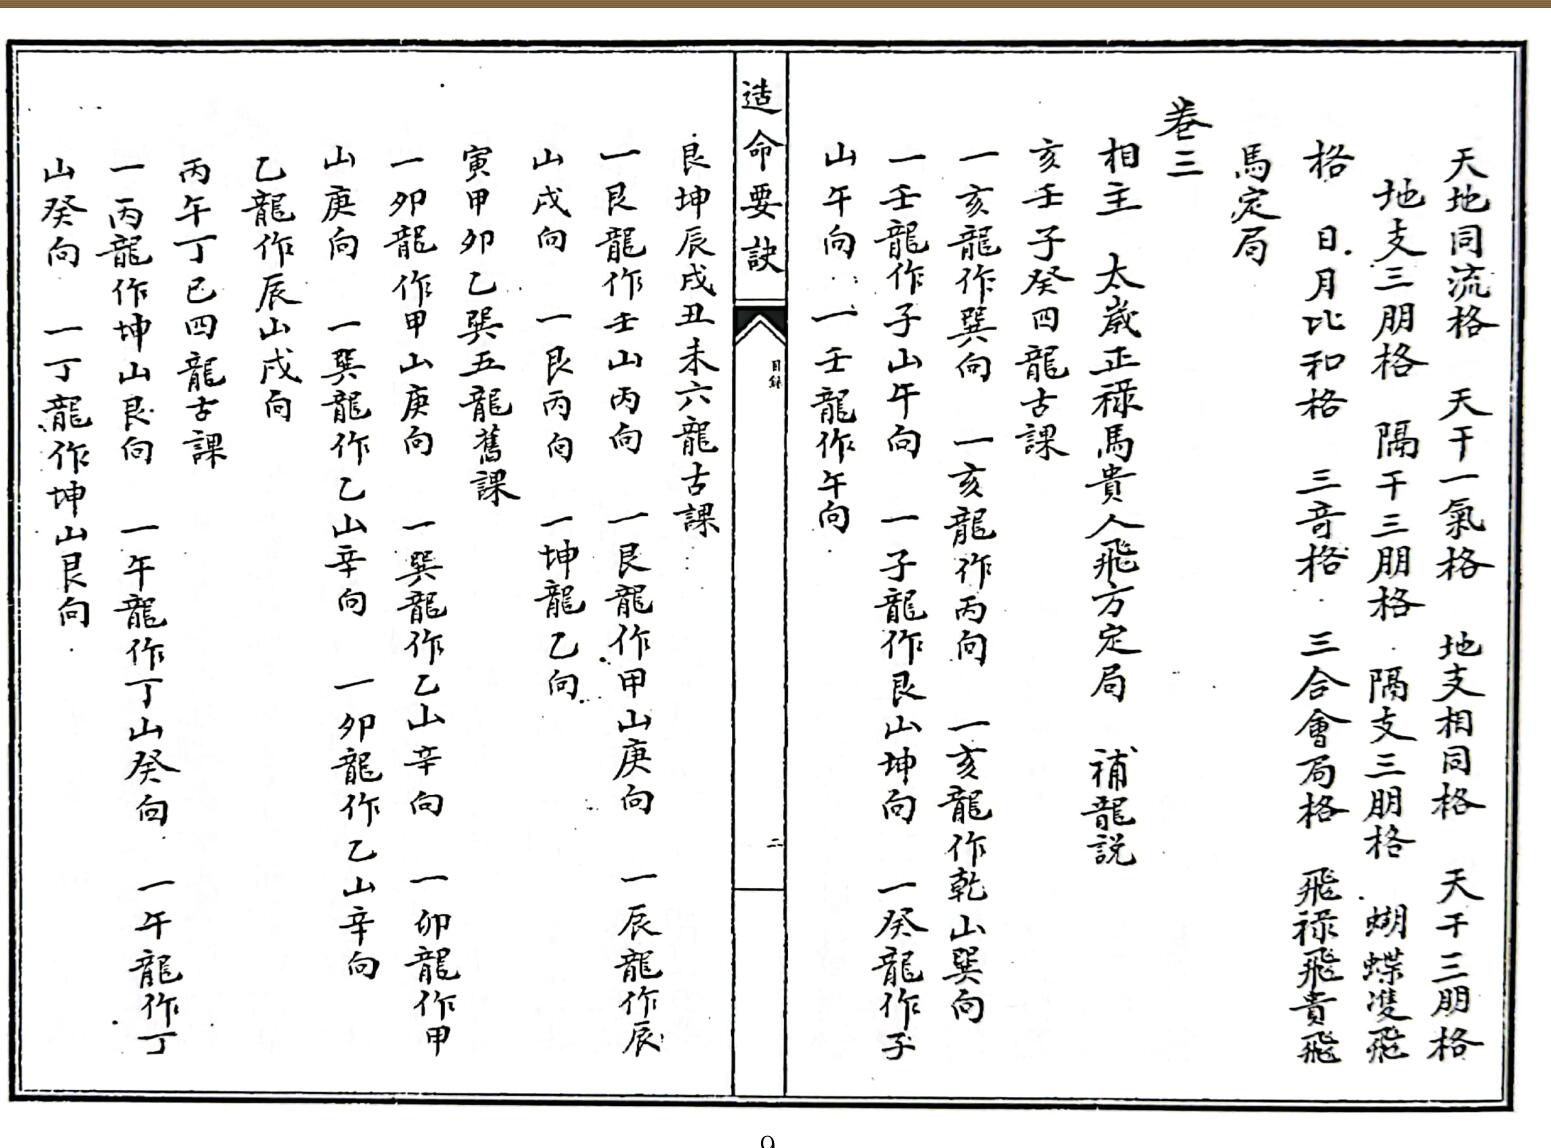 天地同流格　天干一氣格　地支相同格　天干三朋格
地支三朋格　隔干三朋格　隔支三朋格　蝴蝶雙飛
格　日月比和格　三竒格　三合會局格　飛祿飛貴飛
馬定局
卷三
相主　太歲正祿馬貴人飛方定局　補龍説
亥壬子癸四龍古課
一亥龍作巽向　一亥龍作丙向　一亥龍作乾山巽向
一壬龍作子山午向　一子龍作艮山坤向　一癸龍作子
山午向　一壬龍作午向
造命要訣
目錄
二
艮坤辰戌丑未六龍古課
一艮龍作壬山丙向　一艮龍作甲山庚向　一辰龍作辰
山戌向　一艮丙向　一坤龍乙向
寅甲卯乙巽五龍舊課
一卯龍作甲山庚向　一巽龍作乙山辛向　一卯龍作甲
山庚向　一巽龍作乙山辛向　一卯龍作乙山辛向
乙龍作辰山戌向
丙午丁巳四龍古課
一丙龍作坤山艮向　一午龍作丁山癸向　一午龍作丁
山癸向　一丁龍作坤山艮向
9